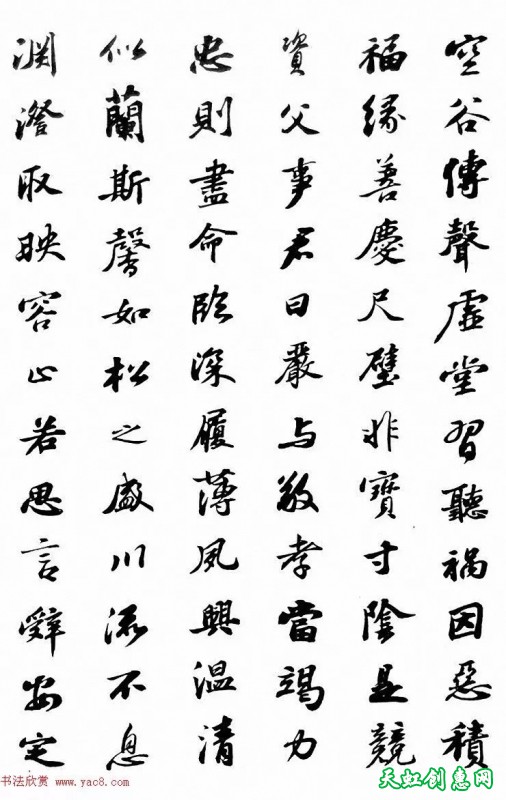 空谷傳聲虛堂習聽禍因惡積
福緣善慶尺璧非寶寸陰是競
資父事君曰嚴与敬孝當竭力
忠則盡命臨深履薄夙興溫凊
似蘭斯馨如松之盛川流不息
渊澄取映容止若思言辭安定
书法欣赏 www.yac8.com
天虹创惠网